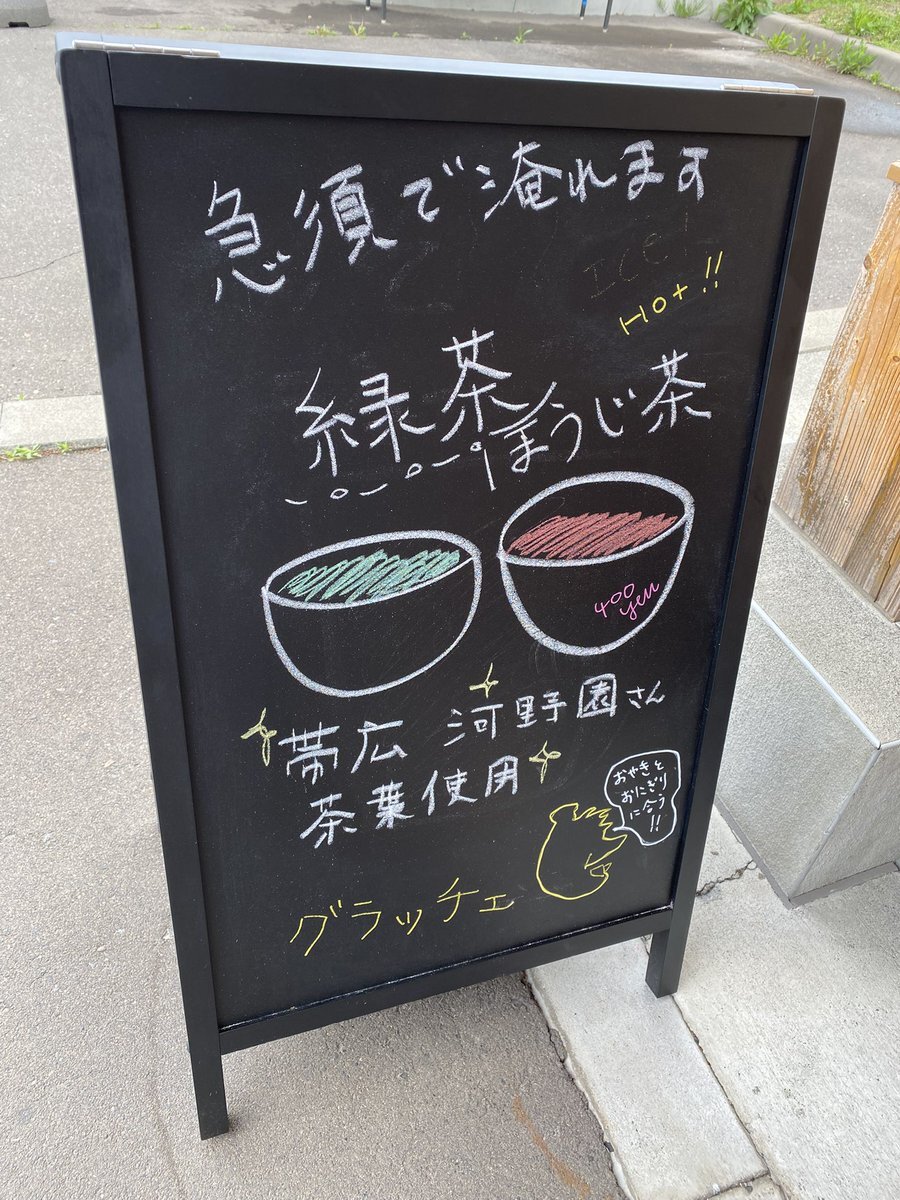 急須で淹れます
Ice!
Hot!!
緑茶
ほうじ茶
400
yen
帯広 河野園さん
茶葉使用
おやきと
おにぎり
に合う
!!
グラッチェ